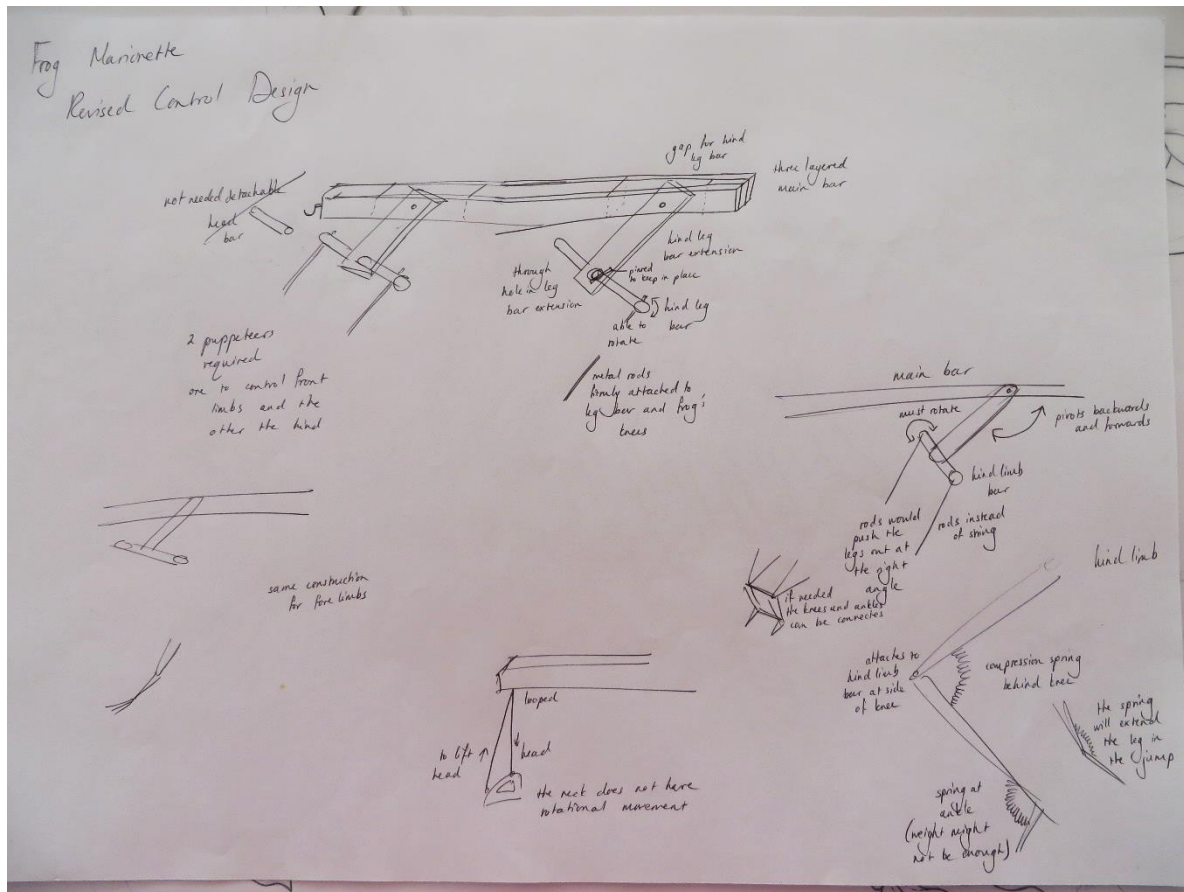 Frog Marionette
Revised Control Design
not needed detachable
head
bar
gap for hind
leg bar
three layered
main bar
through
hole in leg
bar extension
hind leg
bar extension
pinned
to keep in place
hind leg
bar
able to
rotate
2 puppeteers
required
one to control front
limbs and the
other the hind
metal rods
firmly attached to
leg bar and frog's
knees
main bar
must rotate
pivots backwards
and forwards
hind limb
bar
rods would
push the
legs out at
the right
angle
rods instead
of string
same construction
for fore limbs
if needed
the knees and ankles
can be connected
hind limb
attaches to
hind limb
bar at side
of knee
compression spring
behind knee
the spring
will extend
the leg in
the jump
spring at
ankle
(weight might
not be enough)
looped
to lift
head
head
the neck does not have
rotational movement